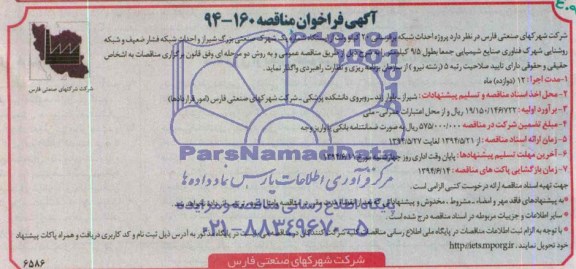 آگهی فراخوان مناقصه ۱۶۰-۹۴
شرکت شهرکهای صنعتی فارس در نظر دارد پروژه احداث شبکه شهرک صنعتی بزرگ شیراز و احداث شبکه فشار ضعیف و شبکه
روشنایی شهرک فناوری صنایع شیمیایی جمعا بطول ۹/۵ کیلومتر از طریق مناقصه عمومی و به روش دو مرحله ای وفق قانون برگزاری مناقصات به اشخاص
حقیقی و حقوقی دارای تایید صلاحیت رتبه ۵ (رشته نیرو) از سازمان برنامه ریزی و نظارت راهبردی واگذار نماید.
۱- مدت اجرا: ۱۲ (دوازده) ماه
۲- محل اخذ اسناد مناقصه و تسلیم پیشنهادات: شیراز - بلوار زند - روبروی دانشکده پزشکی - شرکت شهرکهای صنعتی فارس (امور قراردادها)
۳- برآورد اولیه: ۱۹/۱۵۰/۱۴۶/۷۲۲ ریال و از محل اعتبارات عمرانی
۴- مبلغ تضمین شرکت در مناقصه ۵۷۵/۰۰۰/۰۰۰ ریال به صورت ضمانتنامه بانکی یا واریز وجه
۵- زمان ارائه اسناد مناقصه: از ۱۳۹۴/۵/۲۱ لغایت ۱۳۹۴/۵/۲۷
۶- آخرین مهلت تسلیم پیشنهادها: پایان وقت اداری روز چهارشنبه مورخ
۷- زمان بازگشایی پاکت های مناقصه: ۱۳۹۴/۶/۱۴
جهت تهیه اسناد مناقصه ارائه درخواست کتبی الزامی است.
* به پیشنهادهای فاقد مهر و امضاء، مشروط، مخدوش و پیشنهاداتی که
* سایر اطلاعات و جزییات مربوطه در اسناد مناقصه درج شده است.
* با توجه به الزام ثبت اطلاعات مناقصات در پایگاه ملی اطلاع رسانی مناقصات به آدرس ذیل ثبت نام و کد کاربری دریافت و همراه پاکات پیشنهاد
خود تحویل نمایند. http://iets.mporg.ir
شرکت شهرکهای صنعتی فارس
شرکت شهرکهای صنعتی فارس
۶۵۸۶
ParsNamadData
مرکز فرآوری اطلاعات پارس نماد داده ها
پایگاه اطلاع رسانی مناقصه و مزایده
۰۲۱-۸۸۳۴۹۶۷۰-۵